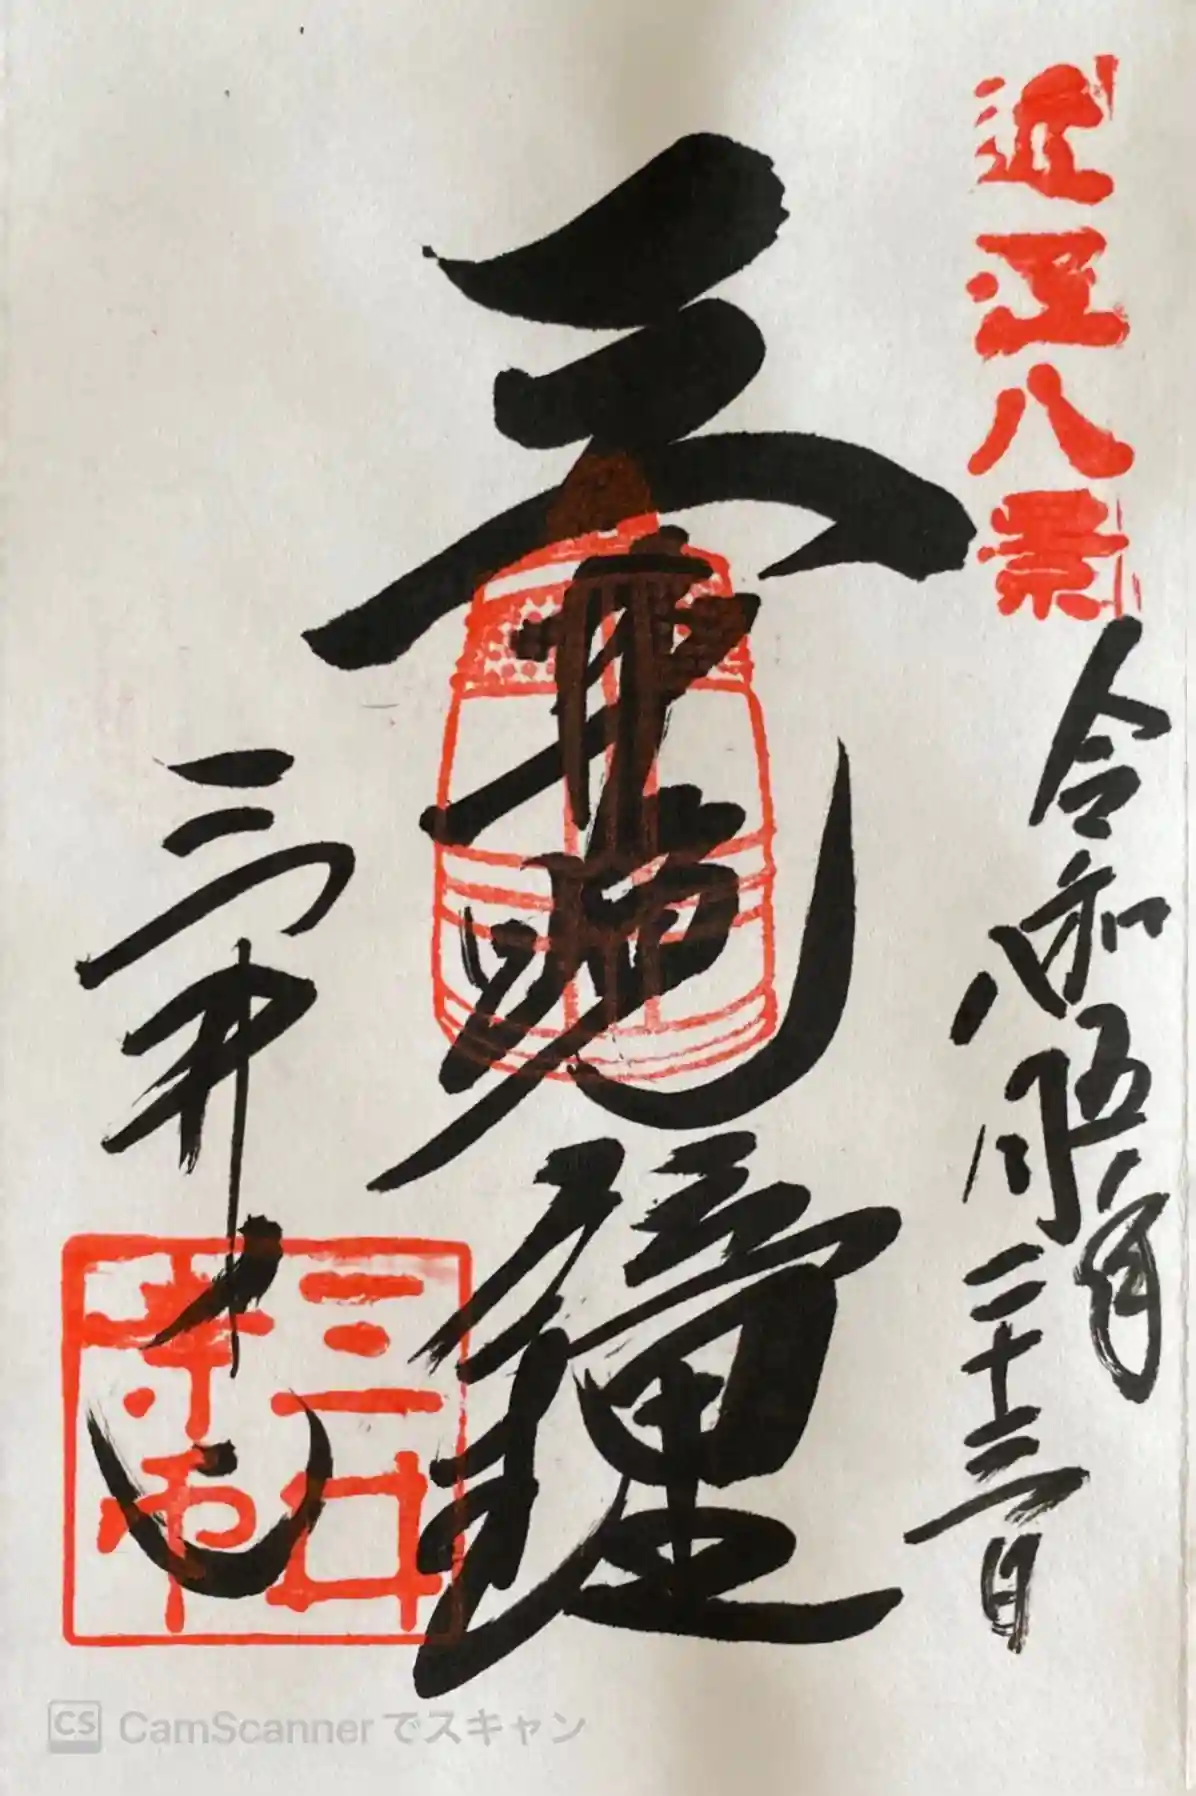 近江八景
令和五年
八月二十三日
三井晩鐘
三井寺
三井寺印
CS CamScannerでスキャン